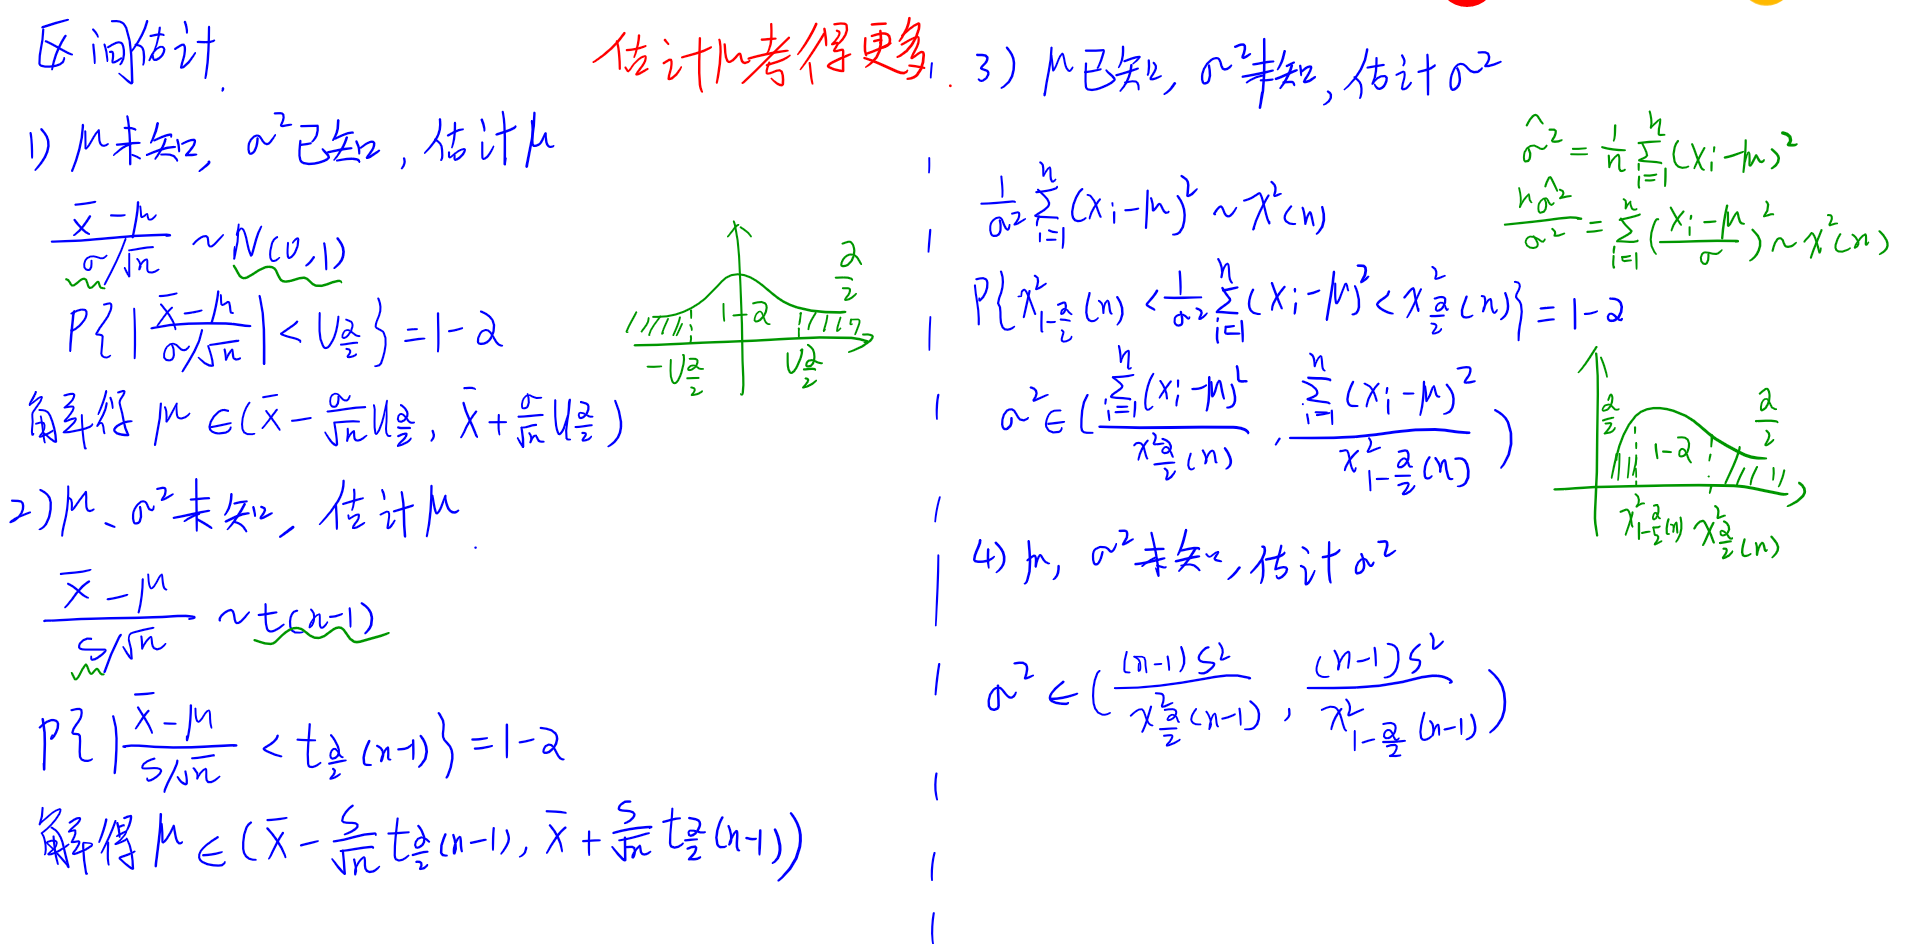 区间估计
估计μ考得更多.
1) μ未知, σ²已知, 估计μ
(X̄-μ)/(σ/√n) ~ N(0,1)
P{|(X̄-μ)/(σ/√n)| < U_{α/2}} = 1-α
解得 μ ∈ (X̄ - σ/√n U_{α/2}, X̄ + σ/√n U_{α/2})
α/2
1-α
-U_{α/2} U_{α/2}
2) μ、σ²未知, 估计μ
(X̄-μ)/(S/√n) ~ t(n-1)
P{|(X̄-μ)/(S/√n) < t_{α/2}(n-1)} = 1-α
解得 μ ∈ (X̄ - S/√n t_{α/2}(n-1), X̄ + S/√n t_{α/2}(n-1))
3) μ已知, σ²未知, 估计σ²
σ̂² = 1/n Σ_{i=1}^{n}(X_i-μ)²
nσ̂²/σ² = Σ_{i=1}^{n}((X_i-μ)/σ)² ~ χ²(n)
1/σ² Σ_{i=1}^{n}(X_i-μ)² ~ χ²(n)
P{χ²_{1-α/2}(n) < 1/σ² Σ_{i=1}^{n}(X_i-μ)² < χ²_{α/2}(n)} = 1-α
σ² ∈ (Σ_{i=1}^{n}(X_i-μ)²/χ²_{α/2}(n), Σ_{i=1}^{n}(X_i-μ)²/χ²_{1-α/2}(n))
α/2 1-α α/2
χ²_{1-α/2}(n) χ²_{α/2}(n)
4) μ, σ²未知, 估计σ²
σ² ∈ ((n-1)S²/χ²_{α/2}(n-1), (n-1)S²/χ²_{1-α/2}(n-1))